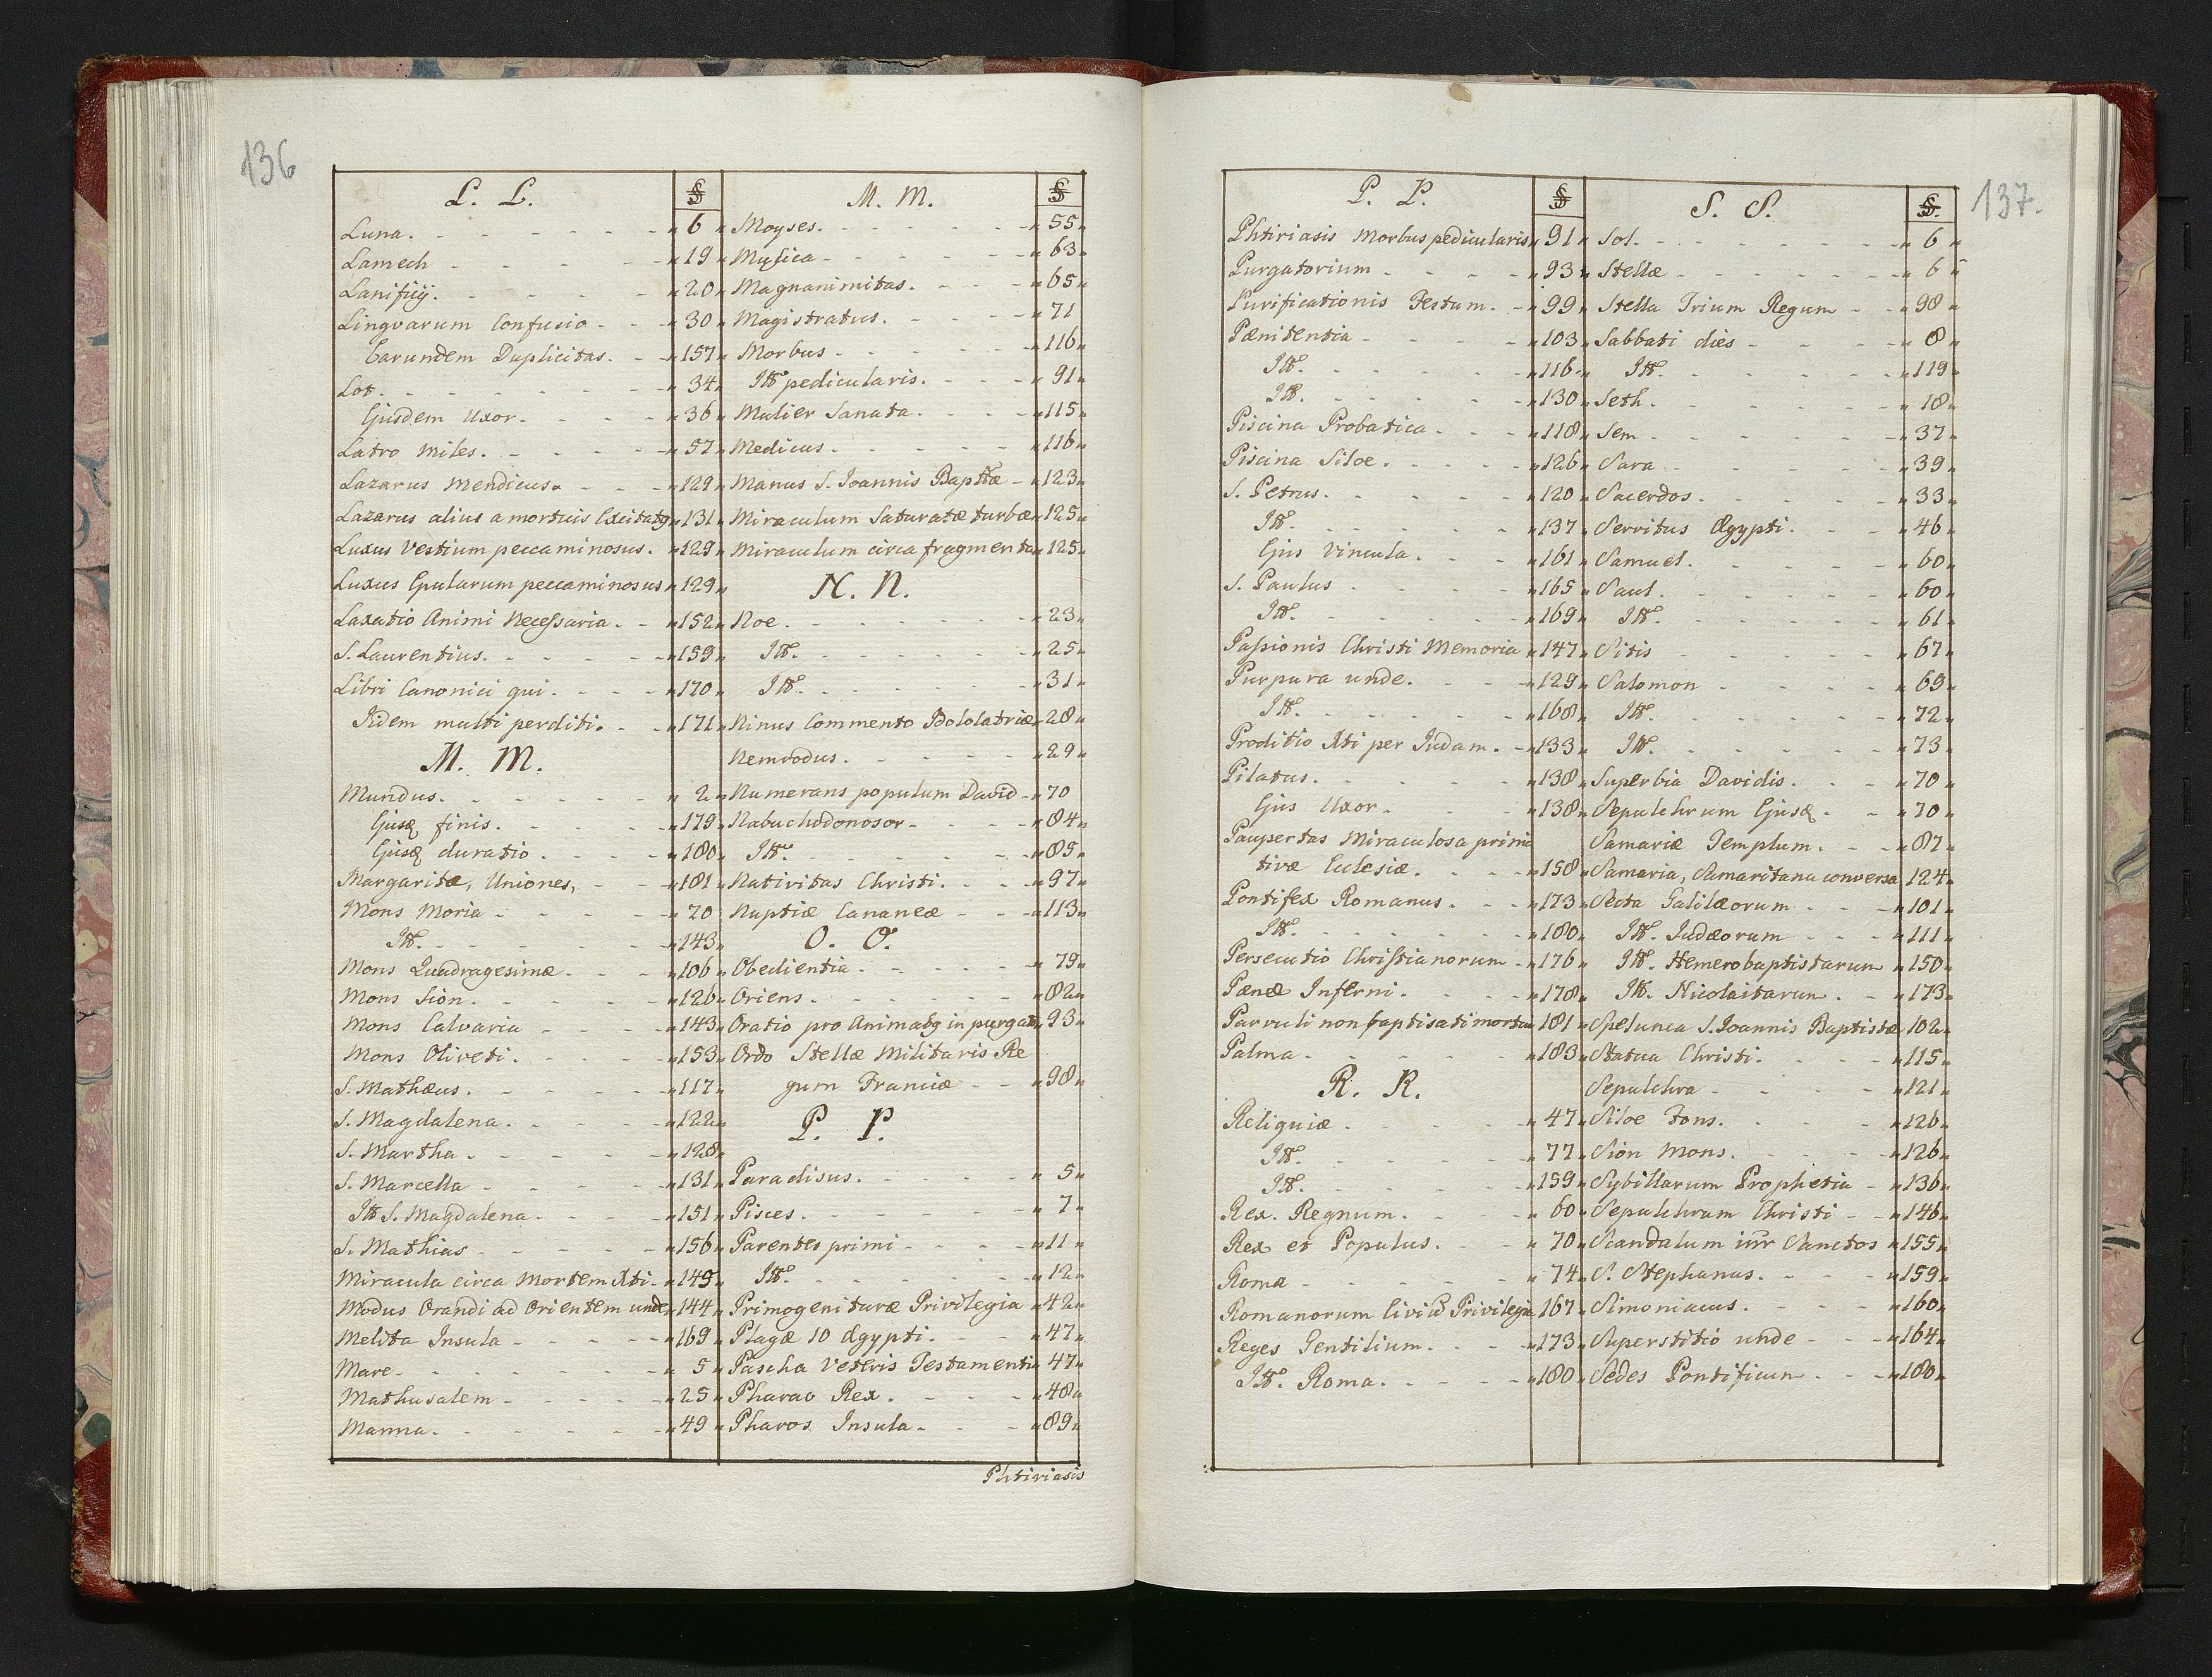 136
L. L. §
Luna. 6
Lamech 19
Lanificij. 20
Lingvarum Confusio 30
Earundem Duplicitas. 157
Lot. 34
Ejusdem Uxor. 36
Latro Miles. 57
Lazarus Mendicus. 129
Lazarus alius a mortuis Excitatq 131
Luxus Vestium peccaminosus. 129
Luxus Epularum peccaminosus 129
Laxatio Animi Necessaria. 152
S. Laurentius. 159
Libri Canonici qui. 170
Iidem multi perditi. 171
M. M.
Mundus. 2
Ejusq finis. 179
Ejusq duratio. 180
Margaritæ, Uniones, 181
Mons Moria 70
Itt. 143
Mons Quadragesimæ. 106
Mons Sion. 126
Mons Calvaria 143
Mons Oliveti. 153
S. Mathæus. 117
S. Magdalena. 122
S. Martha. 128
S. Marcella 131
Itt S. Magdalena. 151
S. Mathias 156
Miracula circa Mortem Xti. 145
Modus Orandi ad Orientem unde 144
Melita Insula 169
Mare. 5
Mathusalem 25
Manna. 49
M. M. §
Moyses. 55
Musica 63
Magnanimitas. 65
Magistratus. 71
Morbus 116
Itt pedicularis. 91
Mulier Sanata. 115
Medicus. 116
Manus S. Joannis Baptæ 123
Miraculum Saturatæ turbæ 125
Miraculum circa fragmenta 125
N. N.
Noe. 23
Itt. 25
Itt. 31
Ninus Commento Idololatriæ 28
Nemrodus. 29
Numerans populum David 70
Nabuchodonosor 84
Itt. 85
Nativitas Christi. 97
Nuptiæ Cananeæ 113
O. O.
Obedientia. 79
Oriens. 82
Oratio pro Animabq in purgat 93
Ordo Stellæ Militaris Re
gum Franciæ 98
P. P.
Paradisus. 5
Pisces. 7
Parentes primi 11
Itt. 12
Primogenituræ Privilegia 42
Plagæ 10 Ægypti. 47
Pascha Veteris Testamenti 47
Pharao Rex. 48
Pharos Insula. 89
Phtiriasis
137.
P. P. §
Phtiriasis Morbus pedicularis 91
Purgatorium 93
Purificationis Festum. 99
Pænitentia 103
Itt. 116
Itt. 130
Piscina Probatica 118
Piscina Siloe. 126
S. Petrus. 120
Itt. 137
Ejus Vincula. 161
S. Paulus 165
Itt. 169
Passionis Christi Memoria 147
Purpura unde. 129
Itt. 168
Proditio Xti per Judam. 133
Pilatus. 138
Ejus Uxor. 138
Paupertas Miraculosa primi
tivæ Ecclesiæ. 158
Pontifex Romanus. 173
Itt. 180
Persecutio Christianorum 176
Pænæ Inferni. 178
Parvuli non baptisati mortui 181
Palma. 183
R. R.
Reliquiæ 47
Itt. 77
Itt. 159
Rex. Regnum. 60
Rex et Populus. 70
Roma 74
Romanorum Civiū Privilegia 167
Reges Gentilium. 173
Itt. Roma. 180
S. S. §.
Sol. 6
Stellæ 6
Stella Trium Regum 98
Sabbati dies 8
Itt. 119
Seth. 18
Sem 37
Sara 39
Sacerdos. 33
Servitus Ægypti. 46
Samuel. 60
Saul. 60
Itt. 61
Sitis 67
Salomon 69
Itt. 72
Itt. 73
Superbia Davidis. 70
Sepulchrum Ejusq. 70
Samariæ Templum. 87
Samaria, Samaritana conversa 124
Secta Galilæorum 101
Itt. Judæorum 111
Itt. Hemerobaptistarum 150
Itt. Nicolaitarum. 173
Spelunca S. Joannis Baptistæ 102
Statua Christi. 115
Sepulchra 121
Siloe Fons. 126
Sion Mons. 126
Sybillarum Prophetia 136
Sepulchrum Christi 146
Scandalum Sanctos 155
S. Stephanus. 159
Simoniacus. 160
Superstitio unde 164
Sedes Pontificum 180